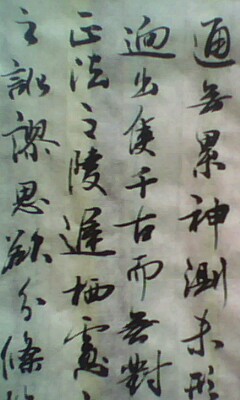 通無累神測未形
迥出隻千古而無對
正法之陵遲栖慮
之訛謬思欲分條